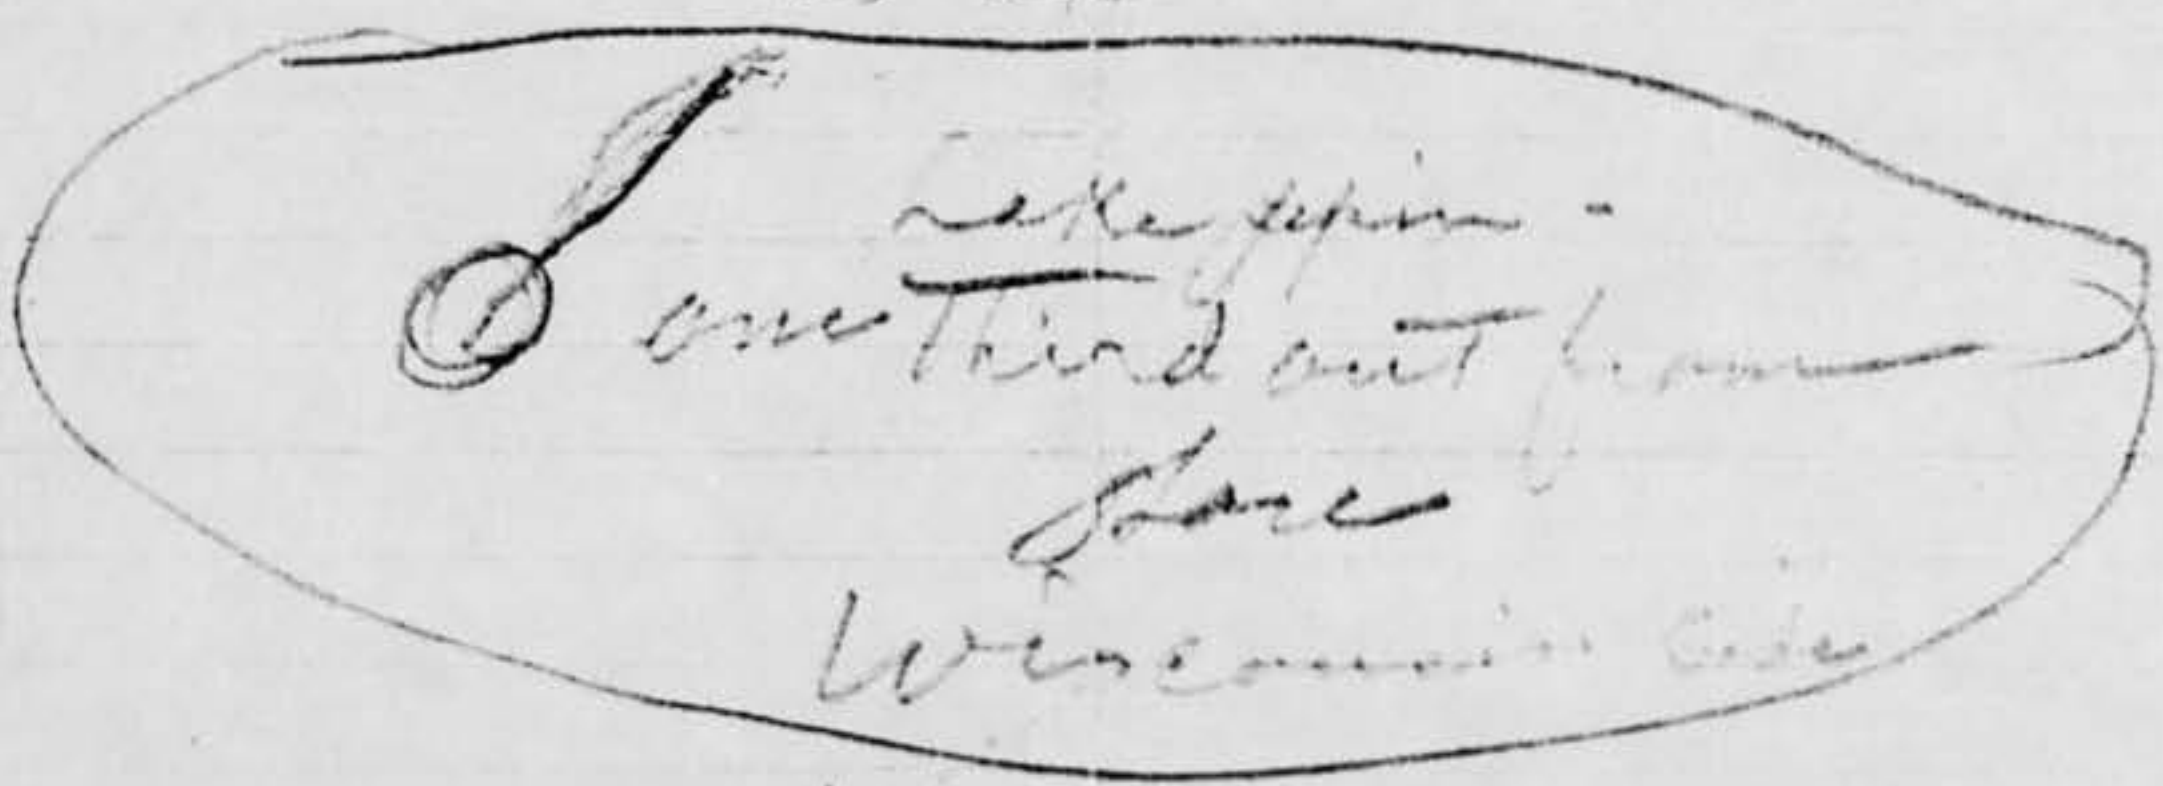 Lake pepin -
one Third out from
shore
Wisconsin Side